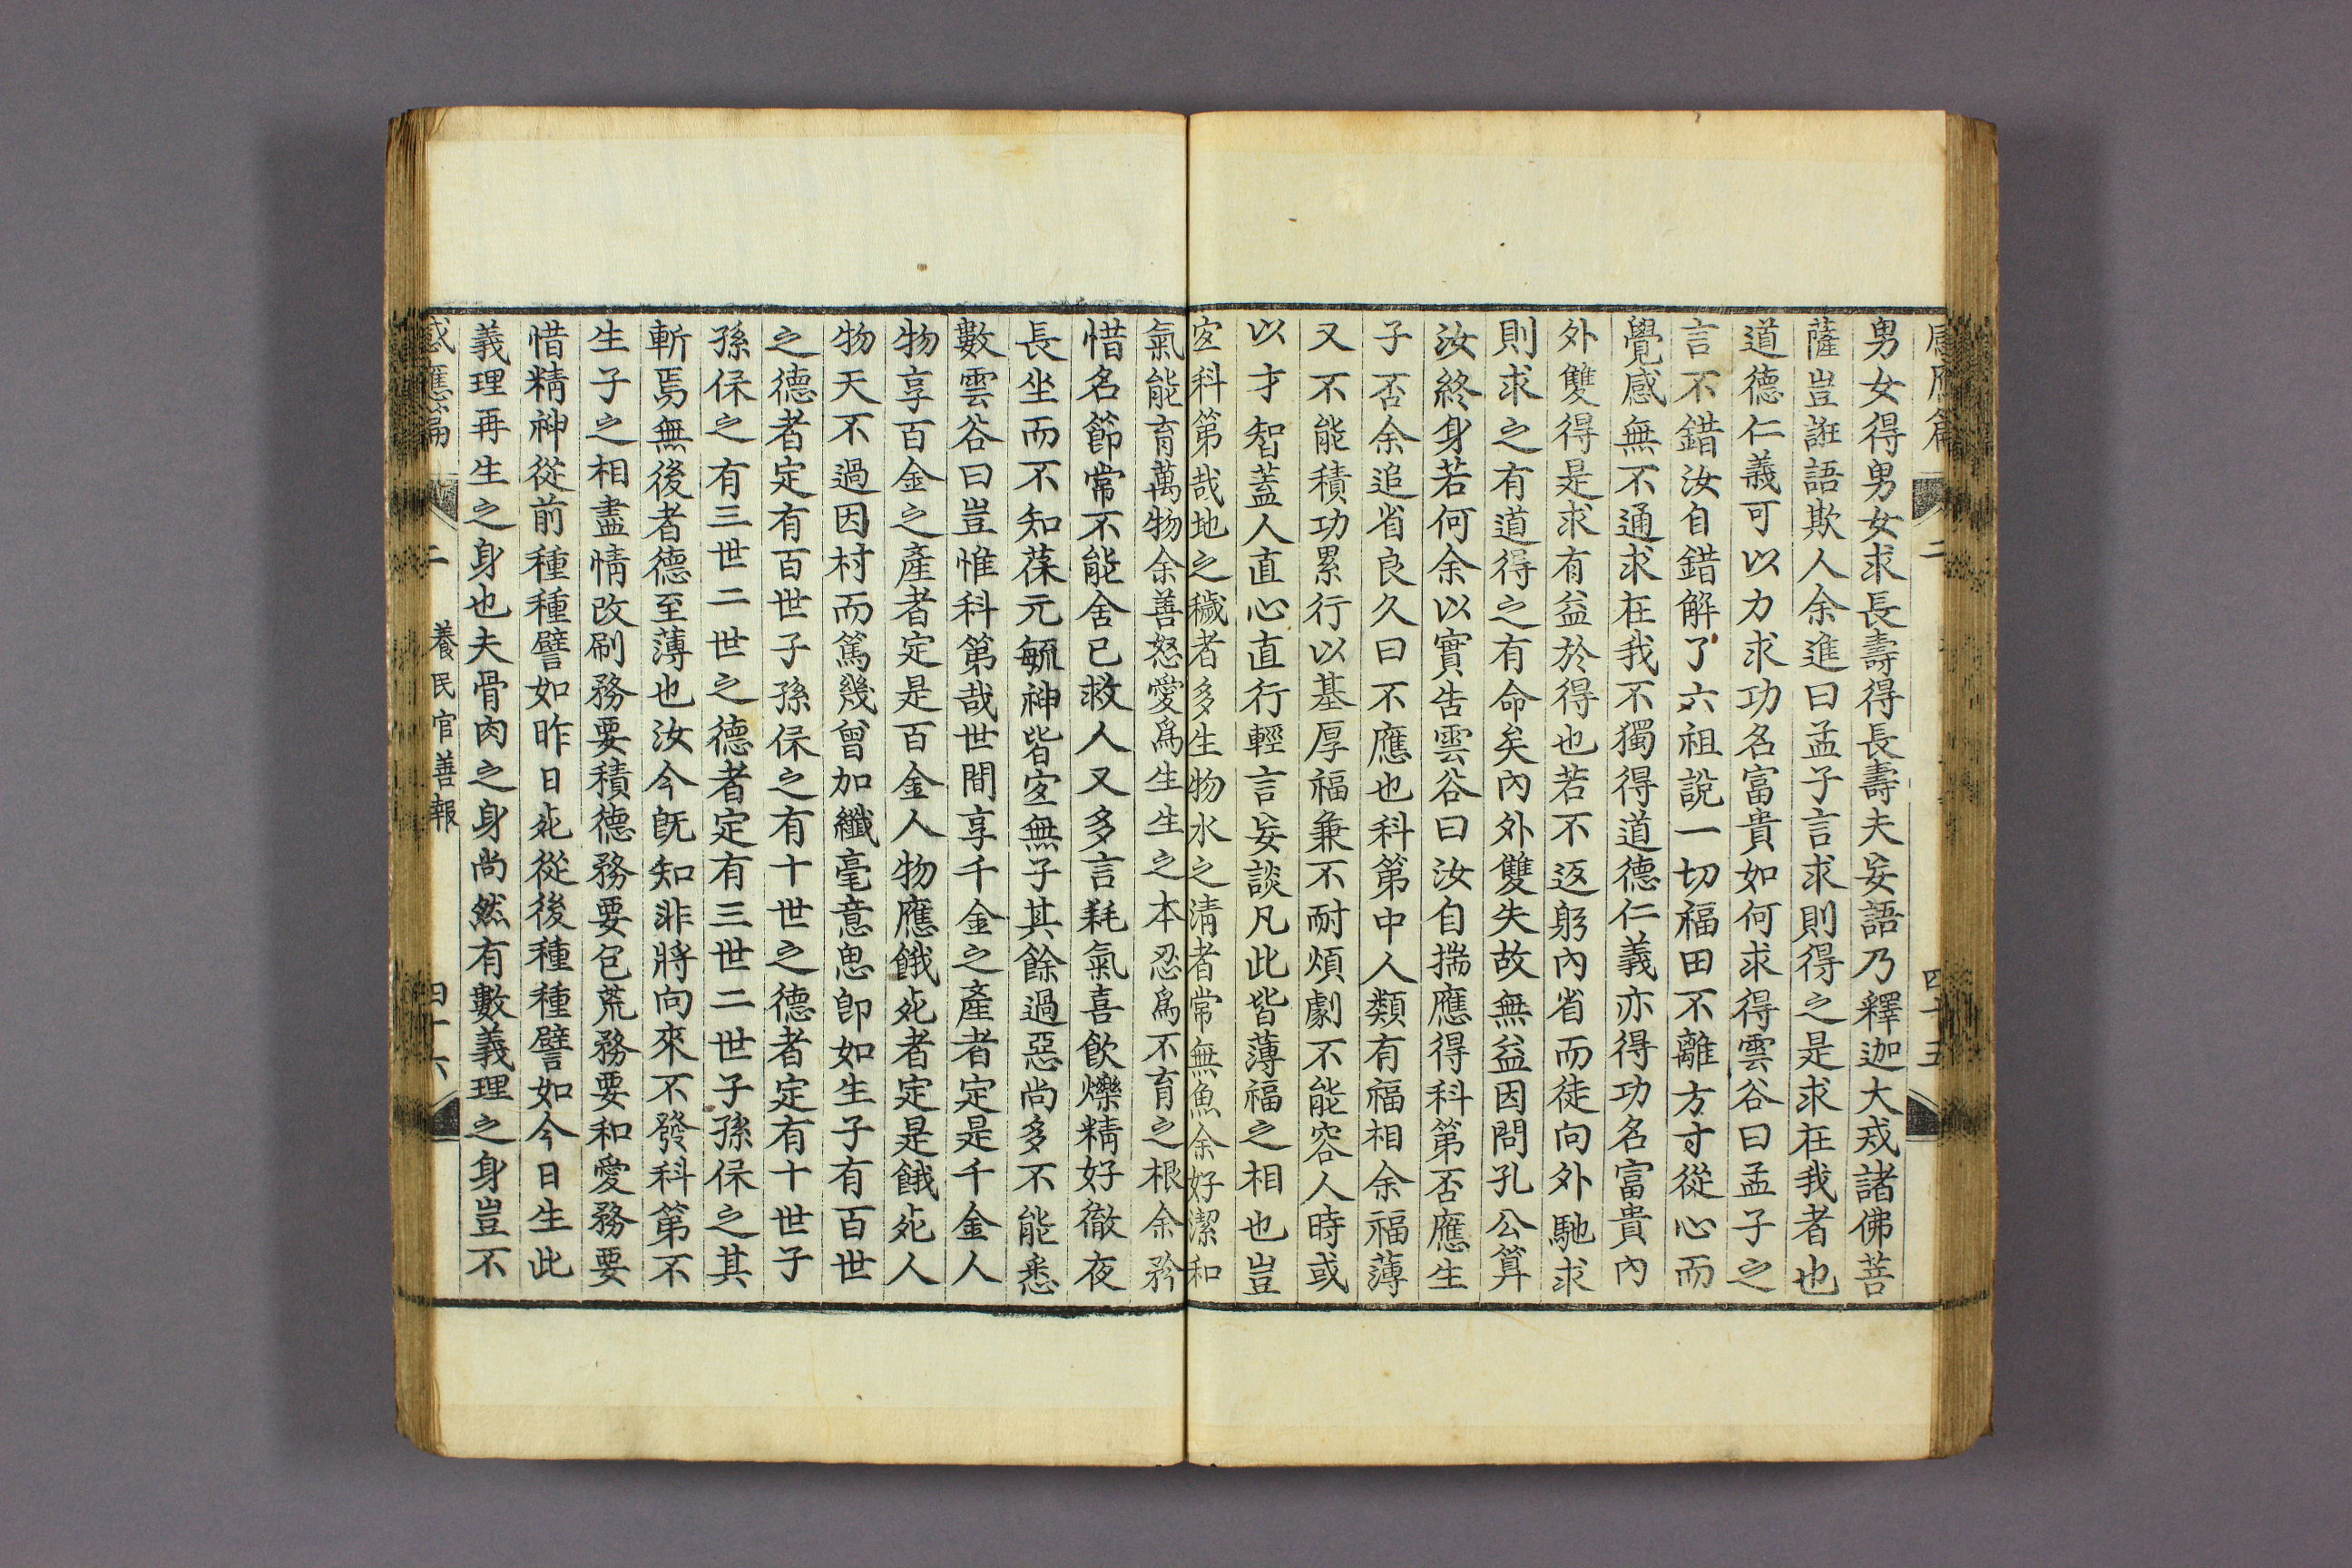 感應篇 二 四十五
男女得男女求長壽得長壽夫妄語乃釋迦大戒諸佛菩
薩豈誑語欺人余進曰孟子言求則得之是求在我者也
道德仁義可以力求功名富貴如何求得雲谷曰孟子之
言不錯汝自錯解了六祖說一切福田不離方寸從心而
覺感無不通求在我不獨得道德仁義亦得功名富貴內
外雙得是求有益於得也若不返躬內省而徒向外馳求
則求之有道得之有命矣內外雙失故無益因問孔公算
汝終身若何余以實告雲谷曰汝自揣應得科第否應生
子否余追省良久曰不應也科第中人類有福相余福薄
又不能積功累行以基厚福兼不耐煩劇不能容人時或
以才智蓋人直心直行輕言妄談凡此皆薄福之相也豈
宜科第哉地之穢者多生物水之淸者常無魚余好潔和
氣能育萬物余善怒愛爲生生之本忍爲不育之根余矜
惜名節常不能舍已救人又多言耗氣喜飮爍精好徹夜
長坐而不知葆元毓神皆宜無子其餘過惡尙多不能悉
數雲谷曰豈惟科第哉世間享千金之產者定是千金人
物享百金之產者定是百金人物應餓死者定是餓死人
物天不過因材而篤幾曾加纖毫意思卽如生子有百世
之德者定有百世子孫保之有十世之德者定有十世子
孫保之有三世二世之德者定有三世二世子孫保之其
斬焉無後者德至薄也汝今旣知非將向來不發科第不
生子之相盡情改刷務要積德務要包荒務要和愛務要
惜精神從前種種譬如昨日死從後種種譬如今日生此
義理再生之身也夫骨肉之身尙然有數義理之身豈不
感應篇 二 養民官善報 四十六